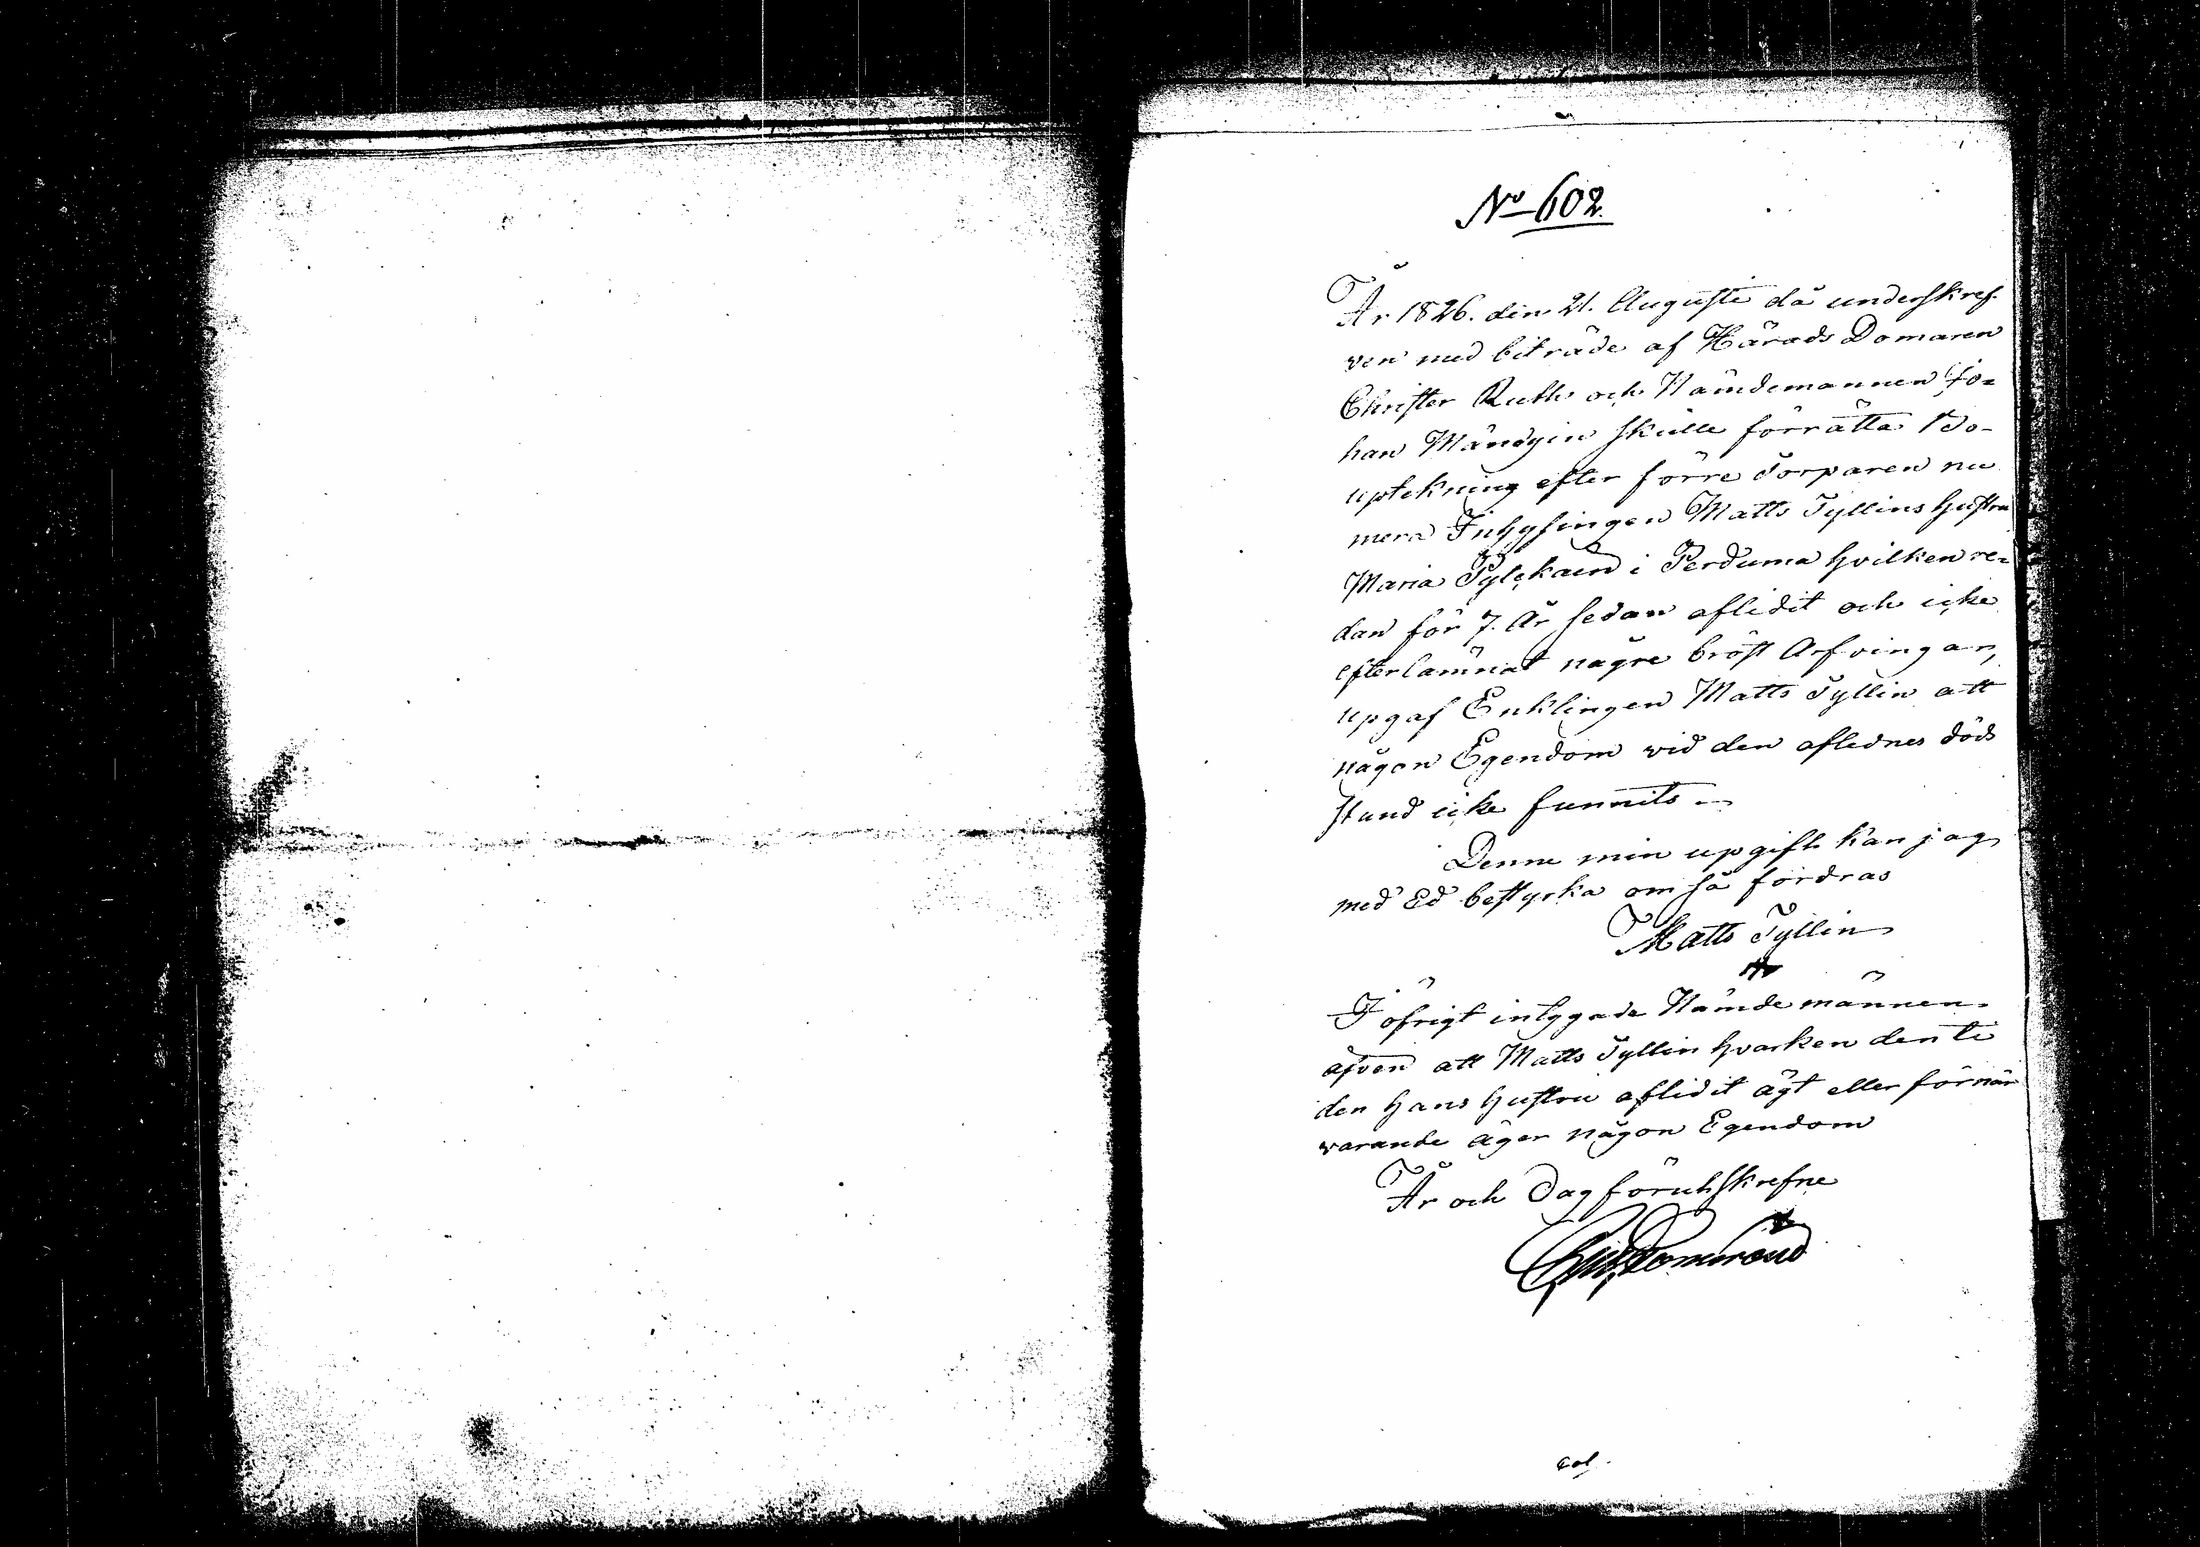 No 602.
År 1826. den 21. Augusti då underskref-
ven med biträde af Härads Domaren
Christer Ruth och Nämdemannen Jo-
han Mändyin skulle förrätta Bo-
uptekning efter förre Torparen nu
mera Inhysingen Matts Tyllins hustru
Maria Pylckäin i Perduma hvilken re-
dan för 7. År sedan aflidit och icke
efterlämnat någre bröst Arfvingar,
upgaf Enklingen Matts Tyllin att
någon Egendom vid den aflednes döds
stund icke funnits —
Denne min upgift kan jag
med Ed bestyrka om så fordras
Matts Tyllin
I öfrigt intygade Nämdemännen
äfven att Matts Tyllin hvarken den ti
den hans hustru aflidit ägt eller förnär
varande äger någon Egendom
År och Dag förutskrefne